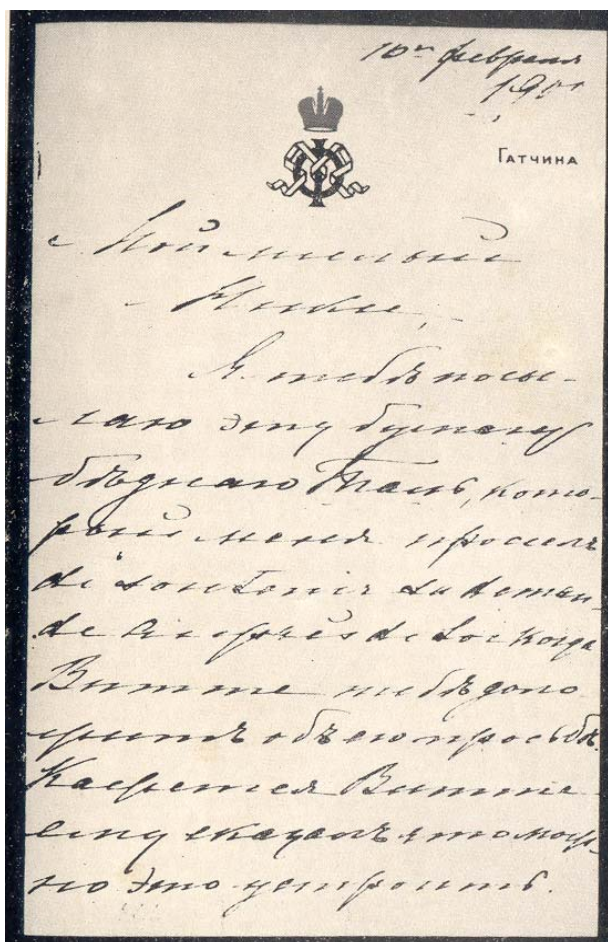 10го февраля
1901
Гатчина
Мой милый
Ники,
Я тебѣ посы-
лаю эту бумагу
бѣднаго кото-
рый меня просилъ
de soutenir sa deman-
de auprès de toi когда
Витте тебѣ доло
житъ объ его просьбѣ.
Кажется Витте
ему сказалъ что мож-
но это устроить.